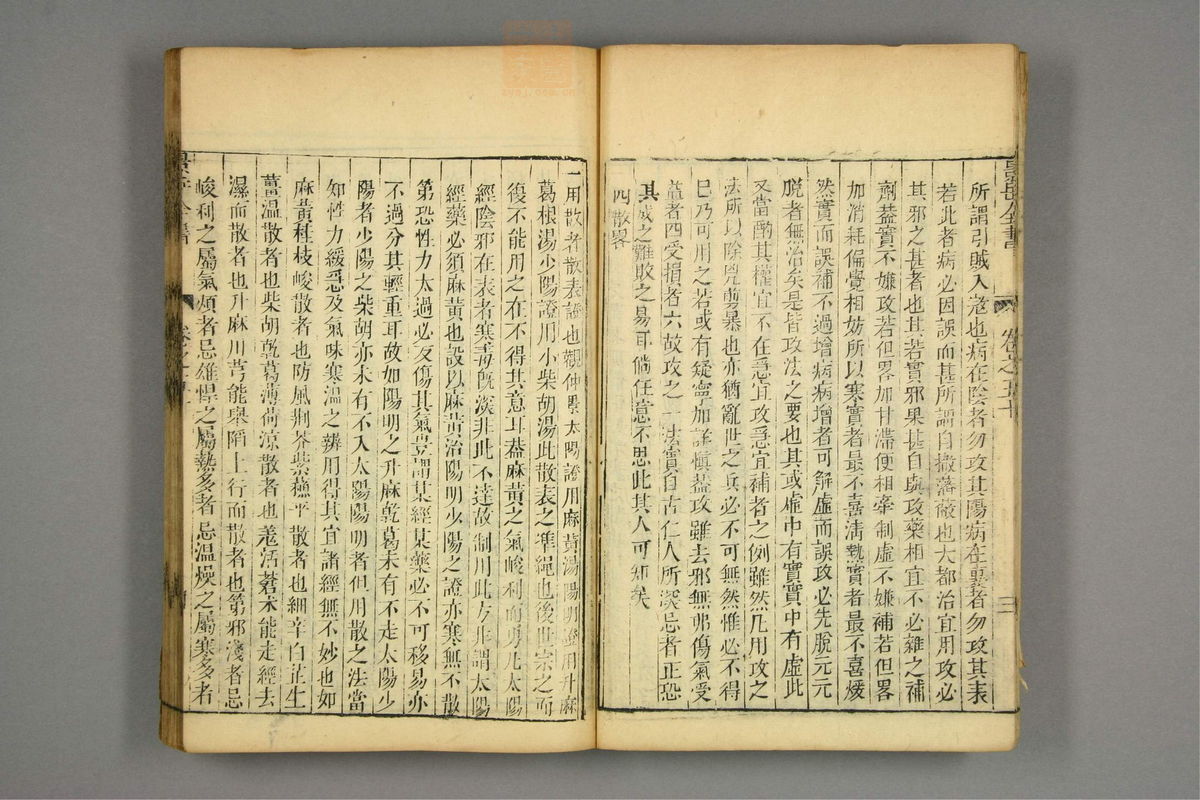 所謂引賊入寇也病在陰者勿攻其陽病在裏者勿攻其表
若此者病必因誤而甚所謂自撤藩蔽也大都治宜用攻必
其邪之甚者也其若實邪果甚自與攻藥相宜不必雜之補
劑葢實不嫌攻若但畧加甘滯便相牽制虛不嫌補若但畧
加消耗偏覺相妨所以寒實者最不喜清熱實者最不喜煖
然實而誤補不過增病病增者可解虛而誤攻必先脫元元
脫者無治矣是皆攻法之要也其或虛中有實實中有虛此
又當酌其權宜不在急宜攻急宜補者之例雖然凡用攻之
法所以除兇剪暴也亦猶亂世之兵必不可無然惟必不得
已乃可用之若或有疑寧加詳慎葢攻雖去邪無弗傷氣受
益者四受損者六故攻之一法實自古仁人所深忌者正恐
其成之難敗之易耳倘任意不思此其人可知矣
四散畧
一用散者散表證也觀仲景太陽證用麻黃湯陽明證用升麻
葛根湯少陽證用小柴胡湯此散表之準繩也後世宗之而
復不能用之在不得其意耳葢麻黃之氣峻利而勇凡太陽
經陰邪在表者寒毒旣深非此不達故制用此方非謂太陽
經藥必須麻黃也設以麻黃治陽明少陽之證亦寒無不散
第恐性力太過必反傷其氣豈謂某經某藥必不可移易亦
不過分其輕重耳故如陽明之升麻乾葛未有不走太陽少
陽者少陽之柴胡亦未有不入太陽陽明者但用散之法當
知性力緩急及氣味寒溫之辨用得其宜諸經無不妙也如
麻黃桂枝峻散者也防風荆芥紫蘓平散者也細辛白芷生
薑溫散者也柴胡乾葛薄荷涼散者也羌活蒼术能走經去
濕而散者也升麻川芎能舉陷上行而散者也第邪淺者忌
峻利之屬氣煩者忌雄悍之屬熱多者忌溫燥之屬寒多者